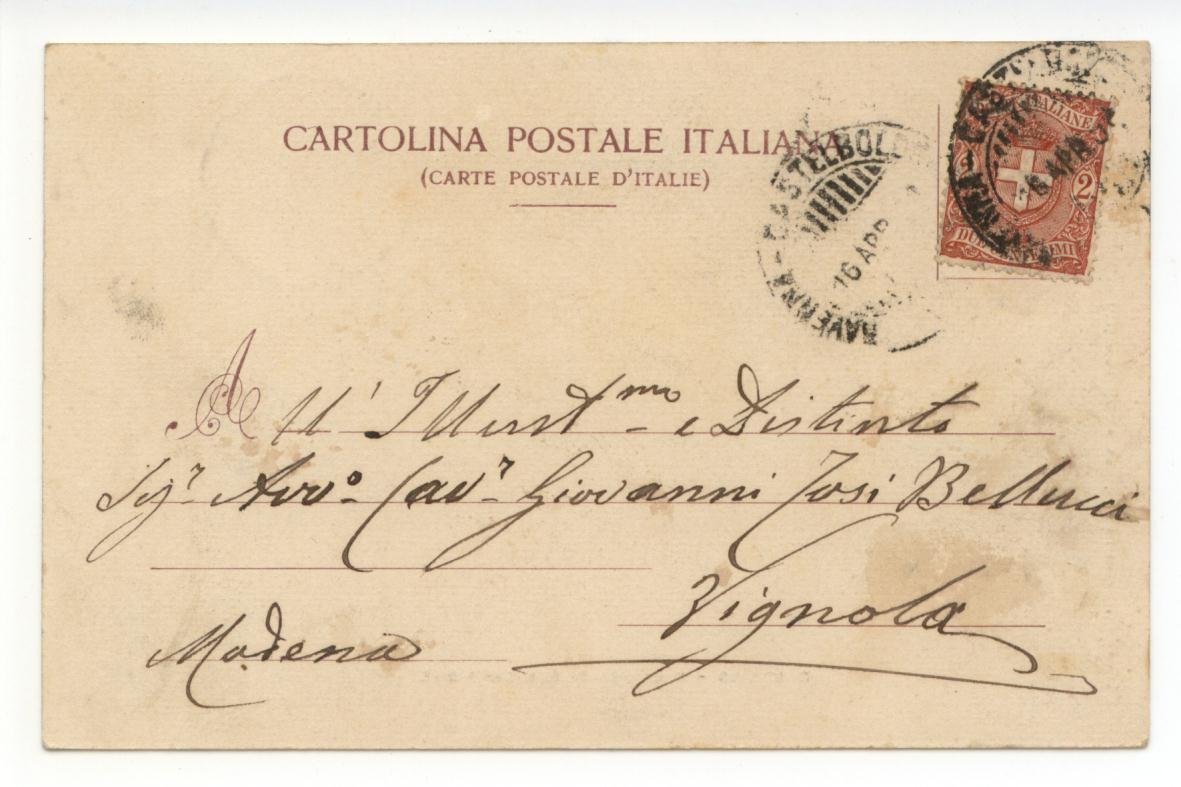 CARTOLINA POSTALE ITALIANA
(CARTE POSTALE D'ITALIE)
RAVENNA - CASTELBOLOGN
16 APR
RAVENNA - CAST
16 APR
ITALIANE
2 2
DUE CENTESIMI
A
All' Illustmo e Distinto
Sigr Avvo Cavr Giovanni Tosi Bellucci
Vignola
Modena